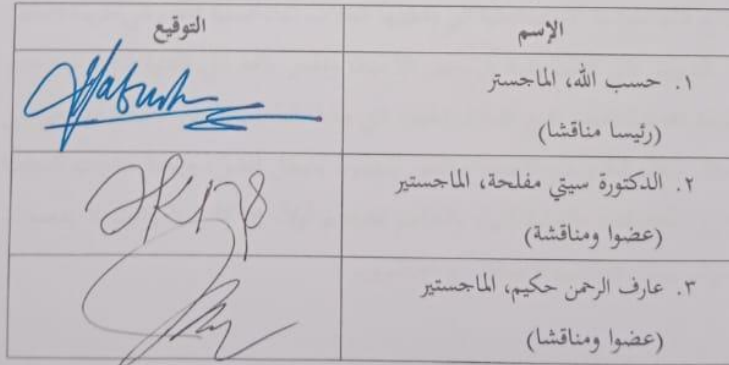 الإسم
التوقيع
١. حسب الله، الماجستر
(رئيسا مناقشا)
٢. الدكتورة سيتي مفلحة، الماجستير
(عضوا ومناقشة)
٣. عارف الرحمن حكيم، الماجستير
(عضوا ومناقشا)